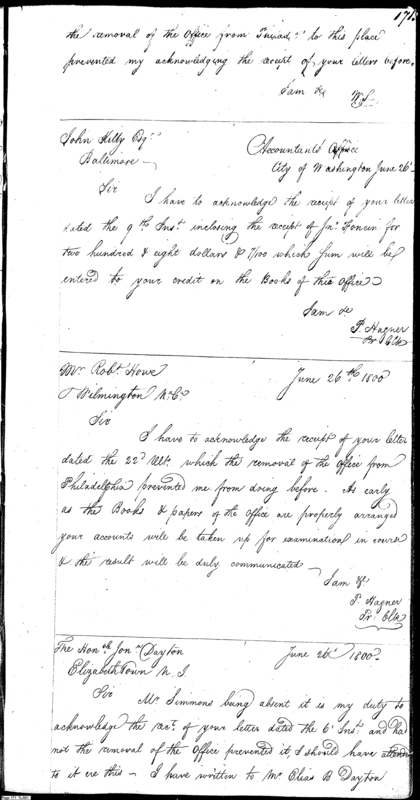 171
the removal of the Office from to this place
prevented my acknowledging the receipt of your letters before.
I am &c
W. S.
John Kilty Esqr.
Baltimore
Accountants Office
City of Washington June 26th
Sir
I have to acknowledge the receipt of your letter
dated the 9th Inst. inclosing the receipt of Jno. for
two hundred & eight dollars & /100 which sum will be
entered to your credit on the Books of this Office
I am &c
P. Hagner
Pr. Clk
Mr. Robt. Howe
Wilmington N. C.
June 26th 1800
Sir
I have to acknowledge the receipt of your letter
dated the 22d Ult. which the removal of the Office from
Philadelphia prevented me from doing before. As early
as the Books & papers of the Office are properly arranged
your accounts will be taken up for examination in course
& the result will be duly communicated
I am &c
P. Hagner
Pr: Clk
The Honble. Jona. Dayton
Elizabeth Town N. J.
June 26th 1800
Sir
Mr. Simmons being absent it is my duty to
acknowledge the rect. of your letter dated the 6th Inst. and had
not the removal of the Office prevented it, I should have
to it ere this - I have written to Mr Elias B Dayton